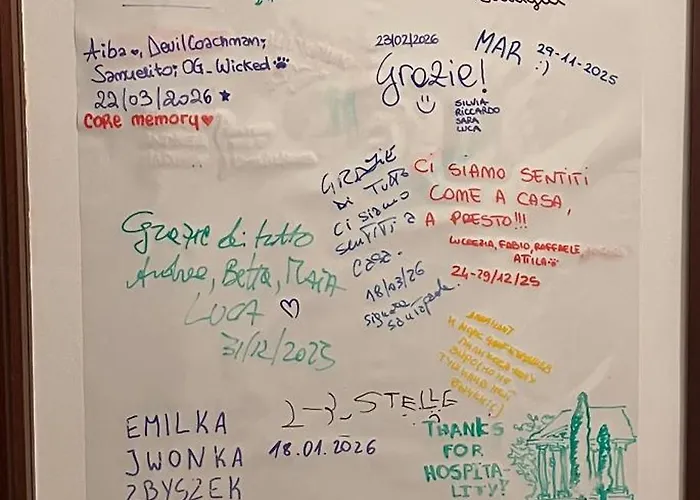 Aiba ♥, DevilCoachman;
Samuelito; OG_Wicked🐾
22/03/2026 ★
CORE memory♥
23/02/2026
Grazie!
SILVIA
RICCARDO
SARA
LUCA
MAR 29-11-2025
:)
GRAZIE
Di TUTTO
Ci siamo
SENTITI a
CASA.
18/03/26
CI SIAMO SENTITI
COME A CASA,
A PRESTO!!!
LUCREZIA, FABIO, RAFFAELE,
ATTILA
24-29/12/25
Grazie di tutto
Andrea, Betta, MAIA
LUCA ♡
31/12/2025
2-3_STELLE
18.01.2026
EMILKA
JWONKA
ZBYSZEK
THANKS
FOR
HOSPITA-
LITY!